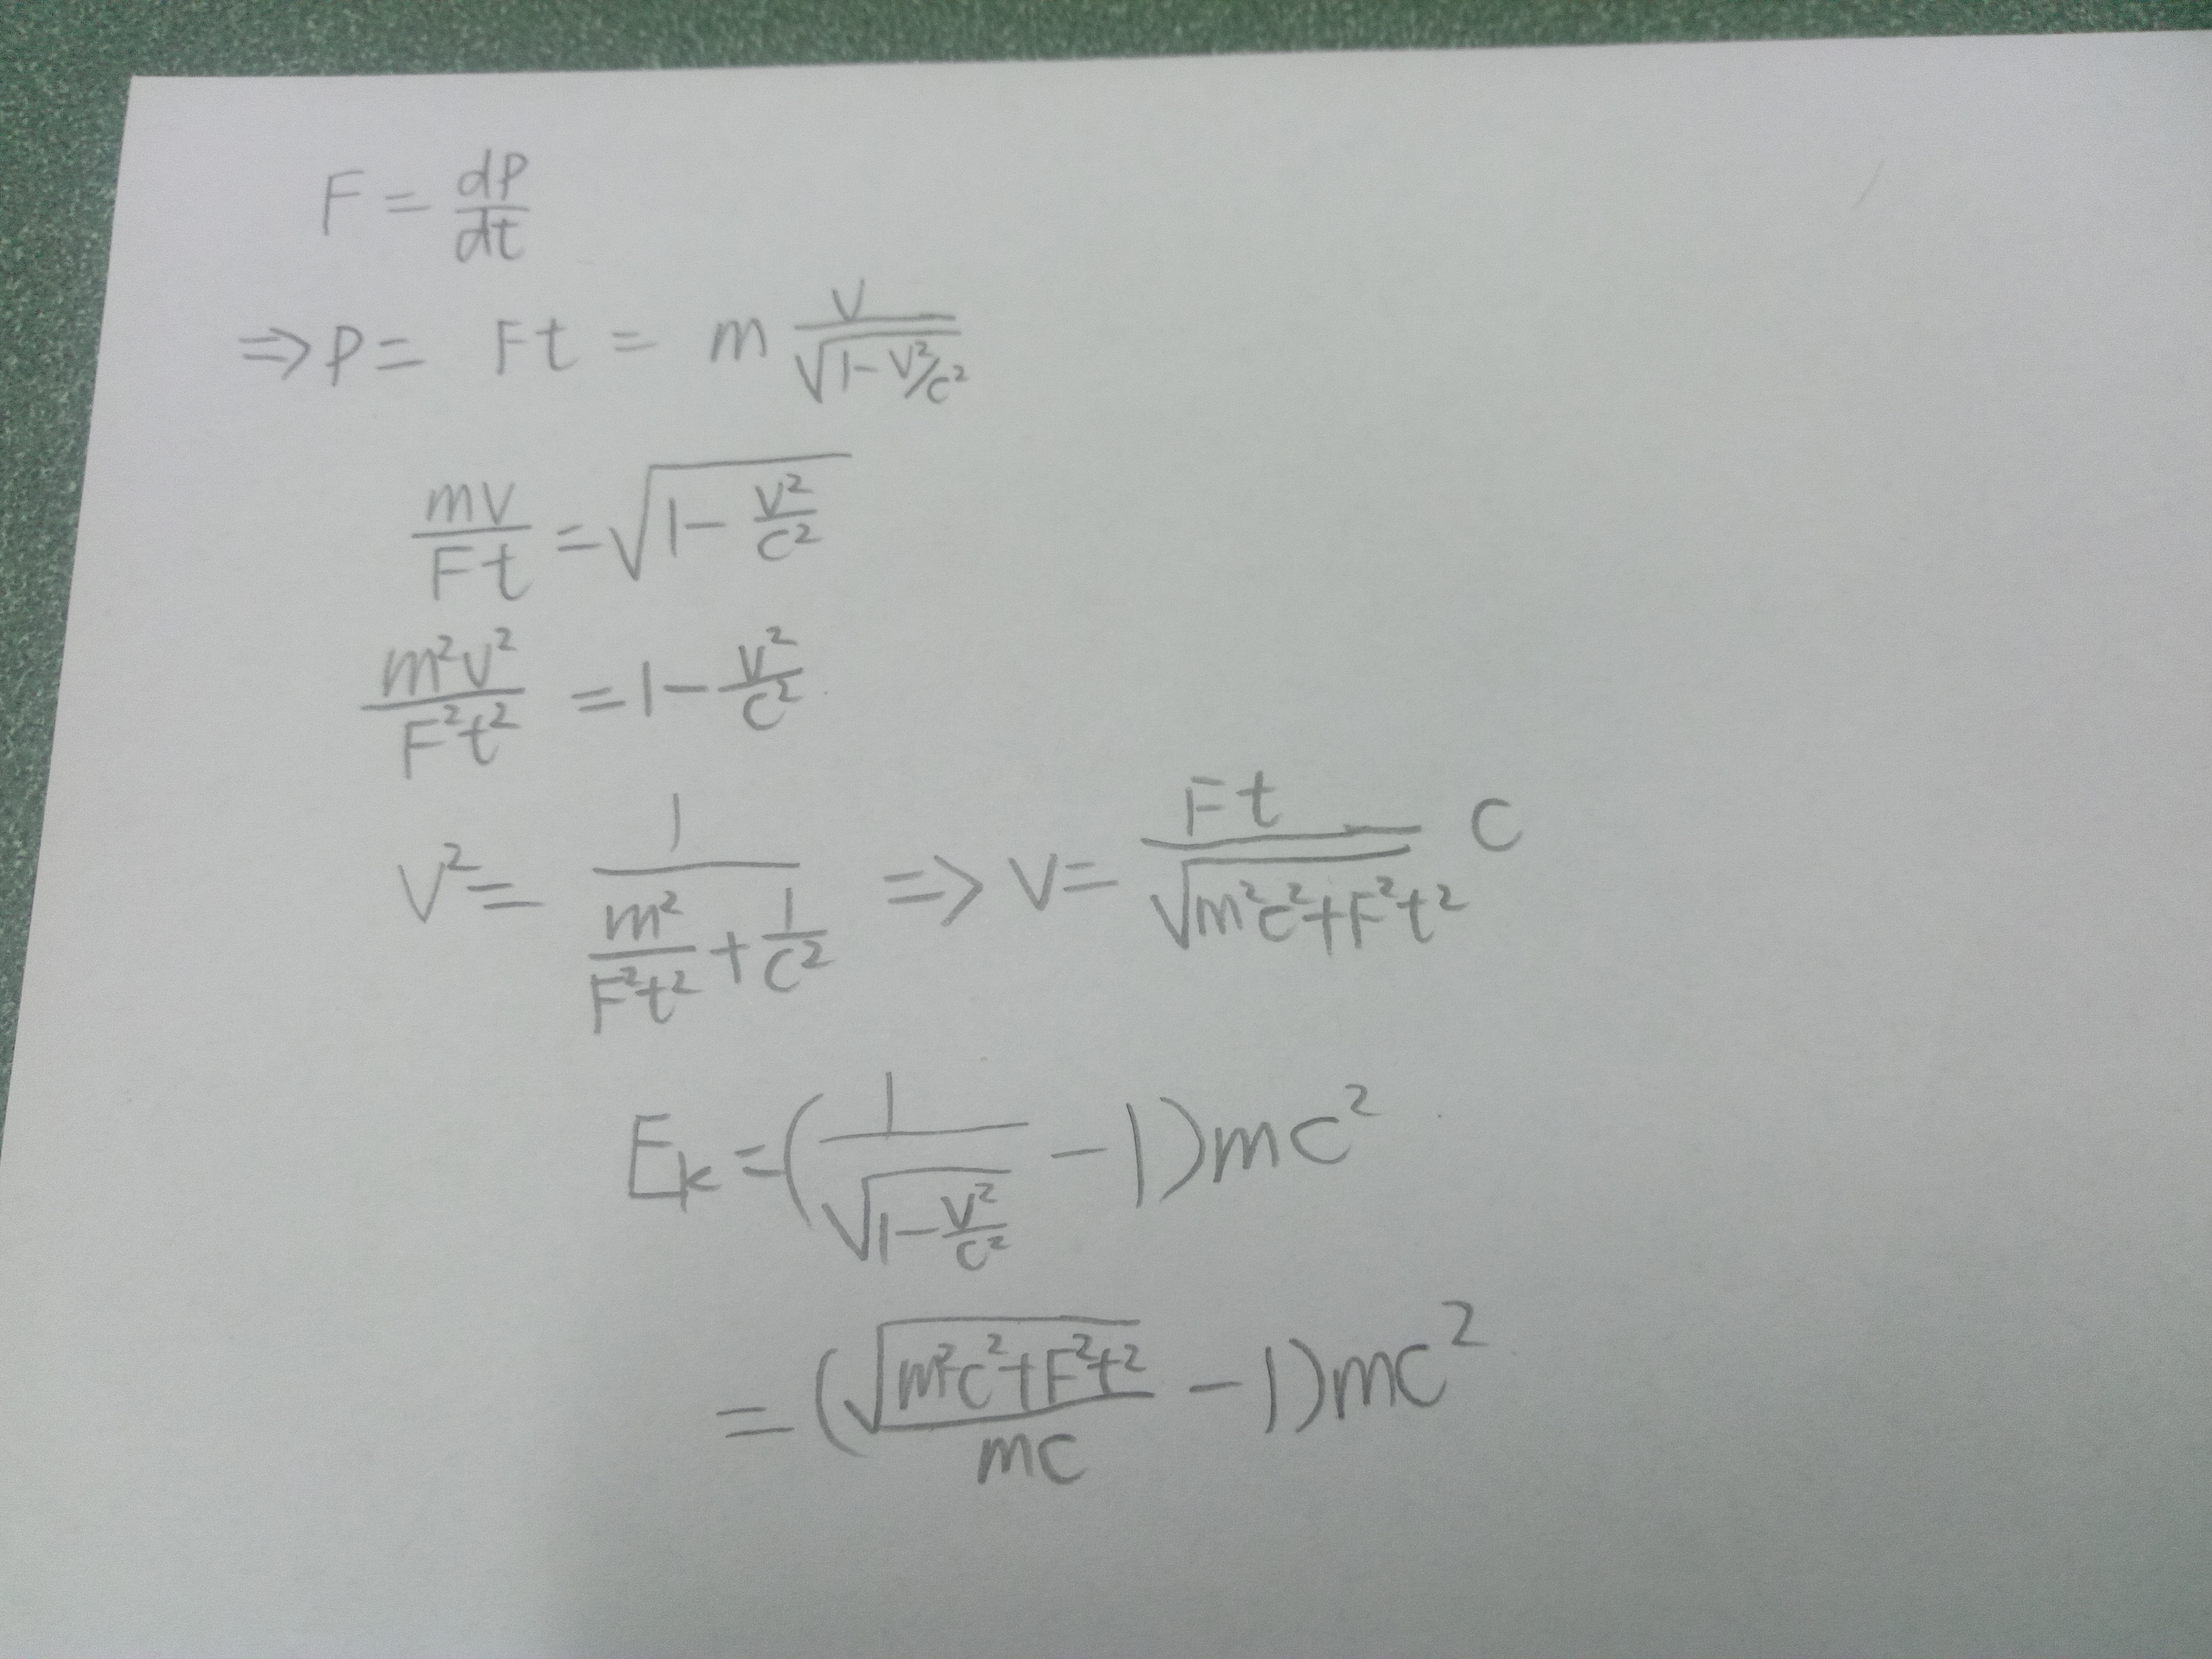 F = dP/dt
⇒ P = Ft = m v/√(1-v²/c²)
mv/Ft = √(1 - v²/c²)
m²v²/F²t² = 1 - v²/c²
v² = 1/(m²/F²t² + 1/c²) ⇒ v = Ft/√(m²c²+F²t²) c
E_k = (1/√(1-v²/c²) - 1)mc²
= (√(m²c²+F²t²)/mc - 1)mc²